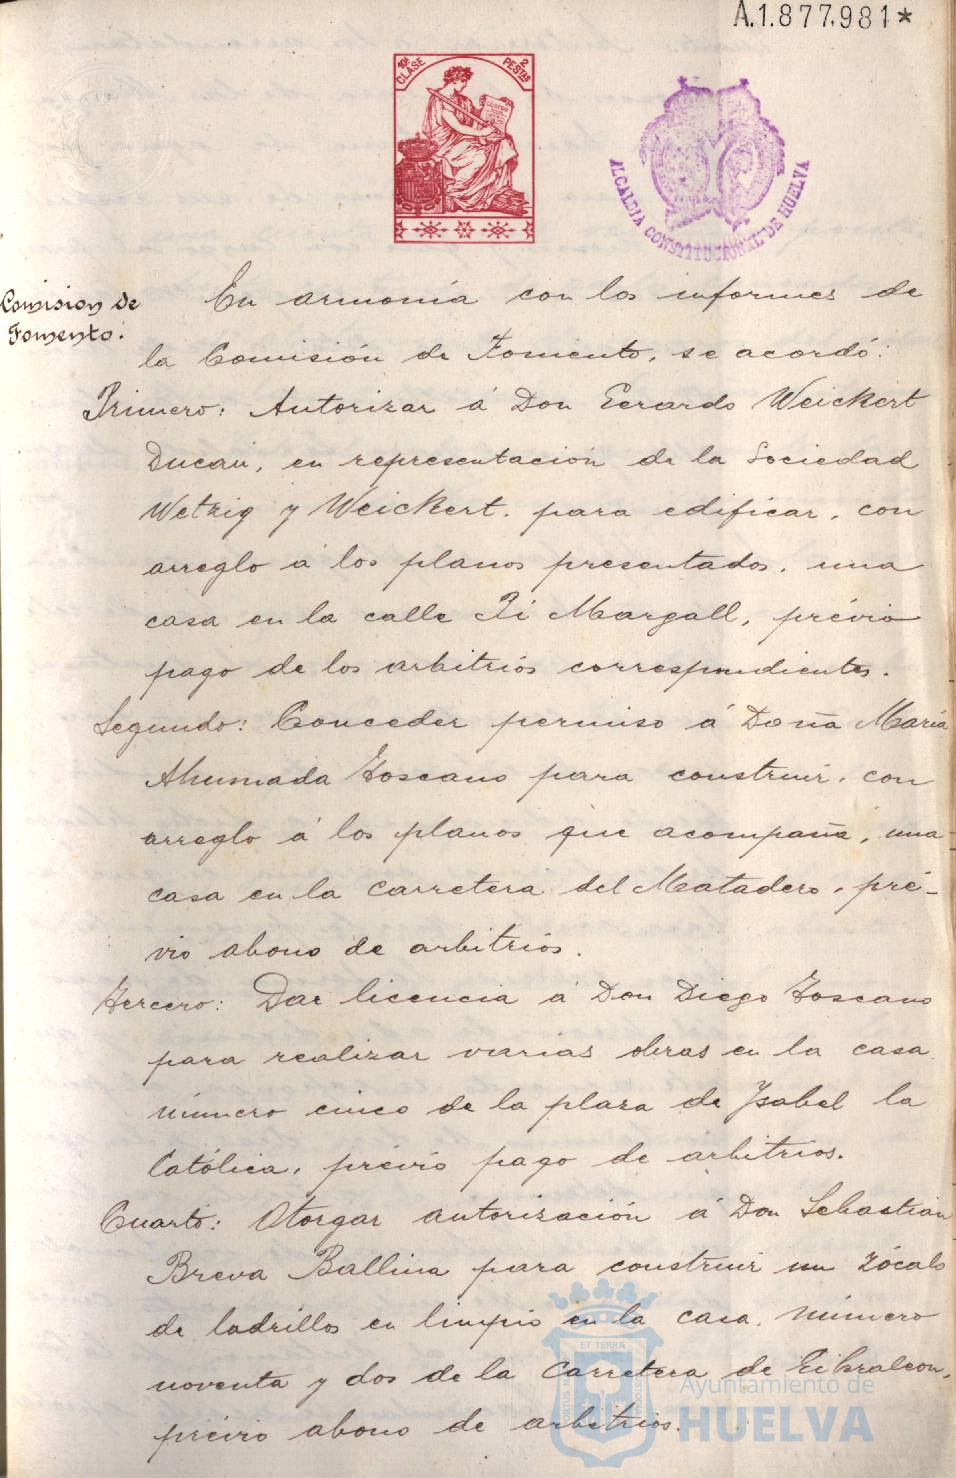 A.1.877.981*
10ª CLASE
2 PESTAS
ALCALDIA CONSTITUCIONAL DE HUELVA
Comision de
Fomento.
En armonía con los informes de
la Comisión de Fomento, se acordó:
Primero: Autorizar á Don Gerardo Weickert
Ducau, en representación de la Sociedad
Wetzig y Weickert, para edificar, con
arreglo á los planos presentados, una
casa en la calle Pi Margall, prévio
pago de los arbitrios correspondientes.
Segundo: Conceder permiso á Doña María
Ahumada Toscano para construir, con
arreglo á los planos que acompaña, una
casa en la Carretera del Matadero, pré-
vio abono de arbitrios.
Tercero: Dar licencia á Don Diego Toscano
para realizar varias obras en la casa
número cinco de la plaza de Ysabel la
Católica, prévio pago de arbitrios.
Cuarto: Otorgar autorización á Don Sebastian
Breva Ballina para construir un zócalo
de ladrillos en limpio en la casa número
noventa y dos de la Carretera de Gibraleon,
prévio abono de arbitrios.
ET TERRA
PORTUS MARIS
CUSTODIA
Ayuntamiento de
HUELVA